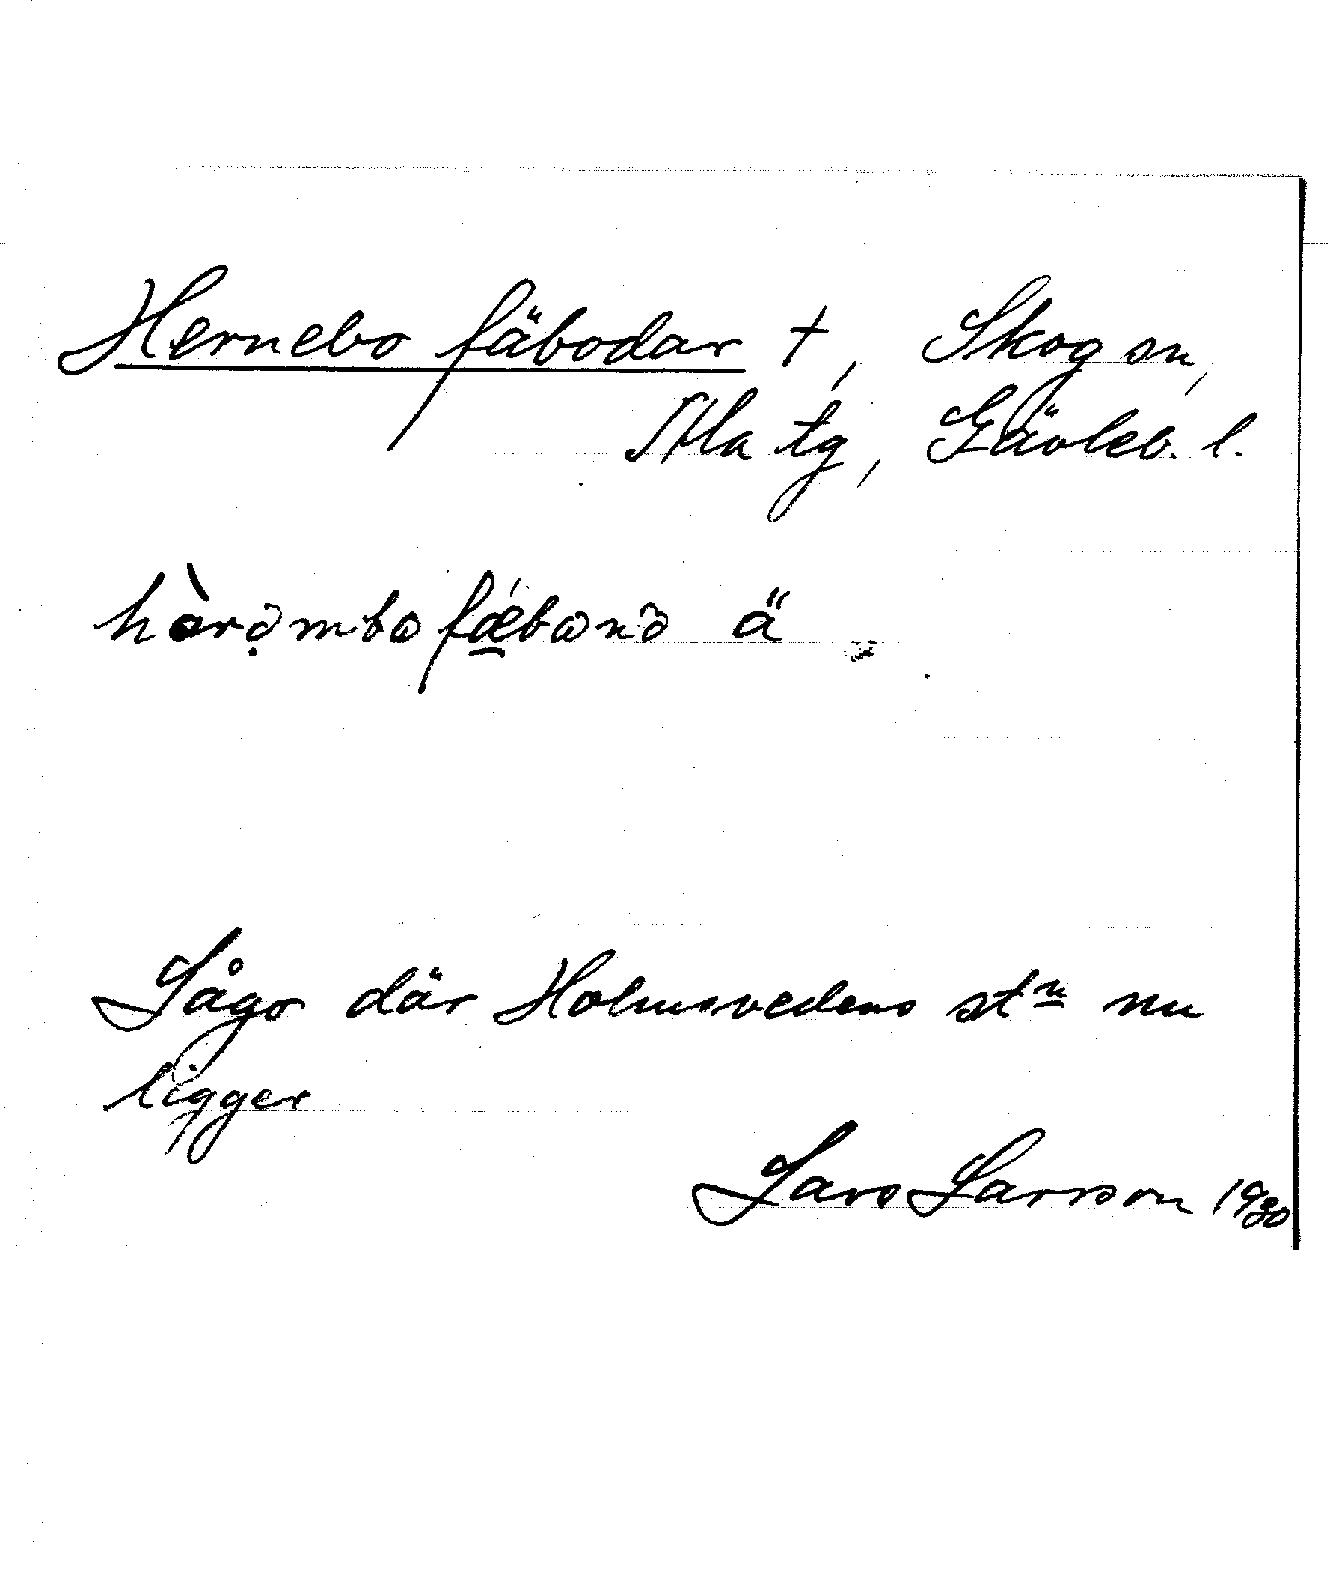 Hernebo fäbodar †, Skog sn,
Ala tg, Gävleb. l.
hərəmbo fæbωnə ä
Lågo där Holmsvedens stn nu
ligger
Lars Larsson 1930